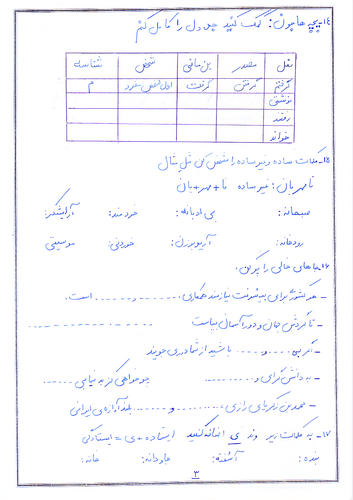 ۱۴- بچه ها جون: کمک کنید جدول را کامل کنم
فعل مصدر بن ماضی شخص شناسه
گرفتم گرفتن گرفت اول شخص مفرد م
نوشتی
رفتند
خواند
۱۵- کلمات ساده و غیر ساده را مشخص کن مثل مثال
نامهربان: غیر ساده نا + مهر + بان
صبحانه: بی ادبانه: خردمند: آرایشگر:
رودخانه: آریوبرزن: خوردنی: موسیقی
۱۶- جاهای خالی را پر کن.
- هر کشوری برای پیشرفت نیازمند همکاری ........ و ........ است.
- تا گردش جهان و دور آسمان بپاست ........
- گر پی ........ و ........ باشید از شما دوری جویند
- به دانش گرای و ........ چو خواهی که ........ نیابی ........
- محمد بن زکریای رازی، ........ و ........ بلند آوازه ی ایرانی
۱۷- به کلمات زیر وند ی اضافه کنید ایستاده + ی = ایستادگی
بنده: آشفته: جاودانه: خانه:
۳